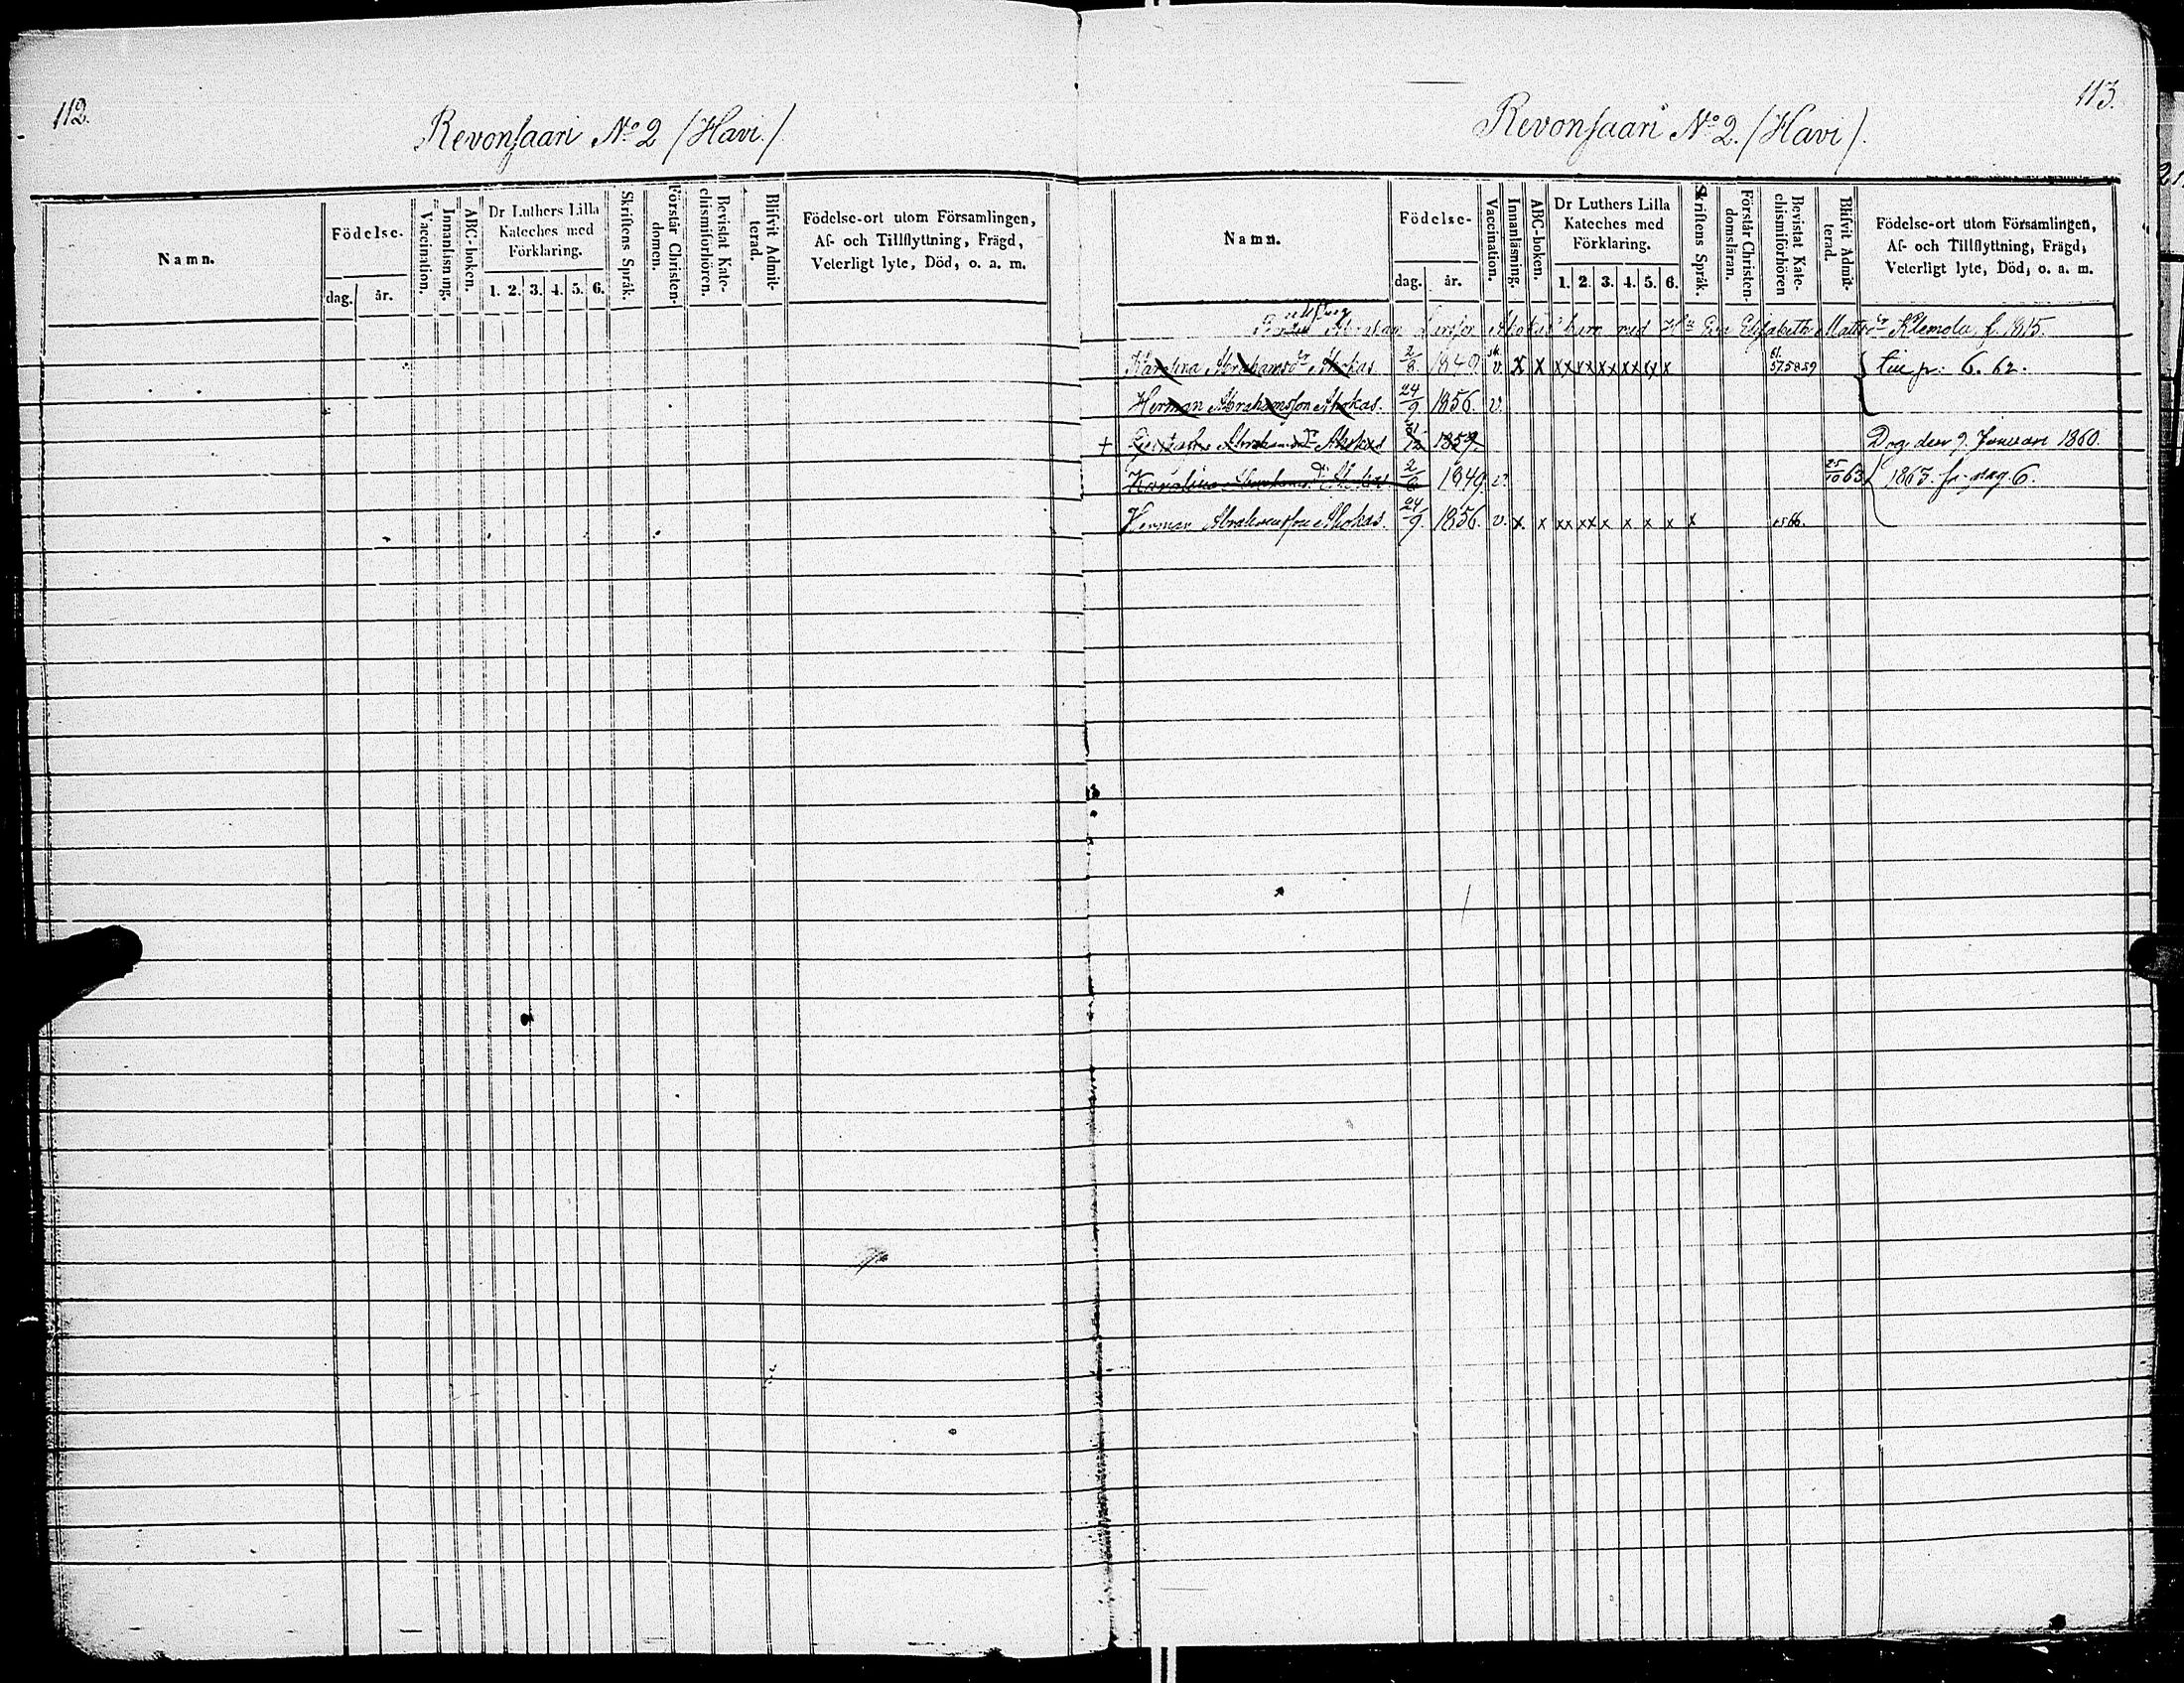 112.
Revonsaari No 2 (Havi.)
Namn.
Födelse-
dag.
år.
Vaccination.
Innanläsning.
ABC-boken.
Dr Luthers Lilla
Kateches med
Förklaring.
1. 2. 3. 4. 5. 6.
Skriftens Språk.
Förstår Christen-
domen.
Bevistat Kate-
chismiförhören.
Blifvit Admit-
terad.
Födelse-ort utom Församlingen,
Af- och Tillflyttning, Frägd,
Veterligt lyte, Död, o. a. m.
113.
Revonsaari No 2. (Havi).
Namn.
Födelse-
dag.
år.
Vaccination.
Innanläsning.
ABC-boken.
Dr Luthers Lilla
Kateches med
Förklaring.
1. 2. 3. 4. 5. 6.
Skriftens Språk.
Förstår Christen-
domsläran.
Bevistat Kate-
chismiförhören
Blifvit Admit-
terad.
Födelse-ort utom Församlingen,
Af- och Tillflyttning, Frägd,
Veterligt lyte, Död, o. a. m.
Abraham Ahokas' barn med Elisabeth Mattsdr Klemola, f. 1815.
Karolina Abrahamsdr Ahokas 2/8 1849. v. x x xx xx xx xx xx x 61. 57 58 59 6. 62.
Herman Abrahamsson Ahokas. 24/9 1856. v.
+ Abrahamsdr Ahokas 1859. Dog den 9. Januari 1860.
Karolina Abrahamsdr Ahokas 1849 v. 25/10 63 1863. fr. pag 6.
Herman Abrahamsson Ahokas. 24/9 1856. v. x x xx xx x x x x x